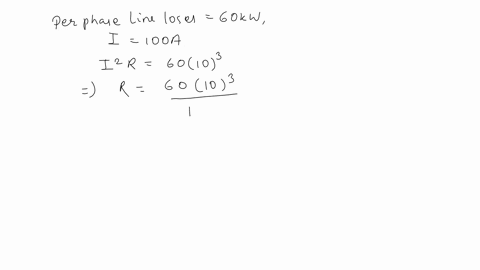 Per phase Line loses = 60kW,
I = 100A
I²R = 60(10)³
=) R = 60(10)³
1